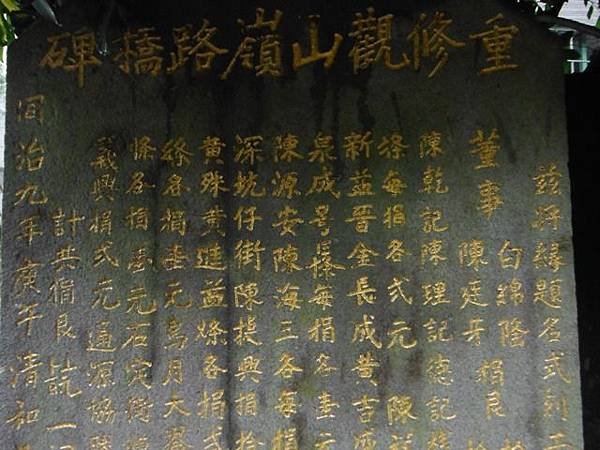 重修觀山嶺路橋碑
茲將緣題名式列
白錦隆
董事 陳廷牙捐艮
陳乾記陳理記德記
條每捐各式元 陳
新益晉金長成黃吉成
泉成号 每捐各壹元
陳源安陳海三各每捐
深坑仔街陳提興捐
黃殊黃進益 各捐式
綠各捐壹元烏月大
條各捐 元石
義興捐式元通源協
計共捐艮 一
同治九年庚午清和